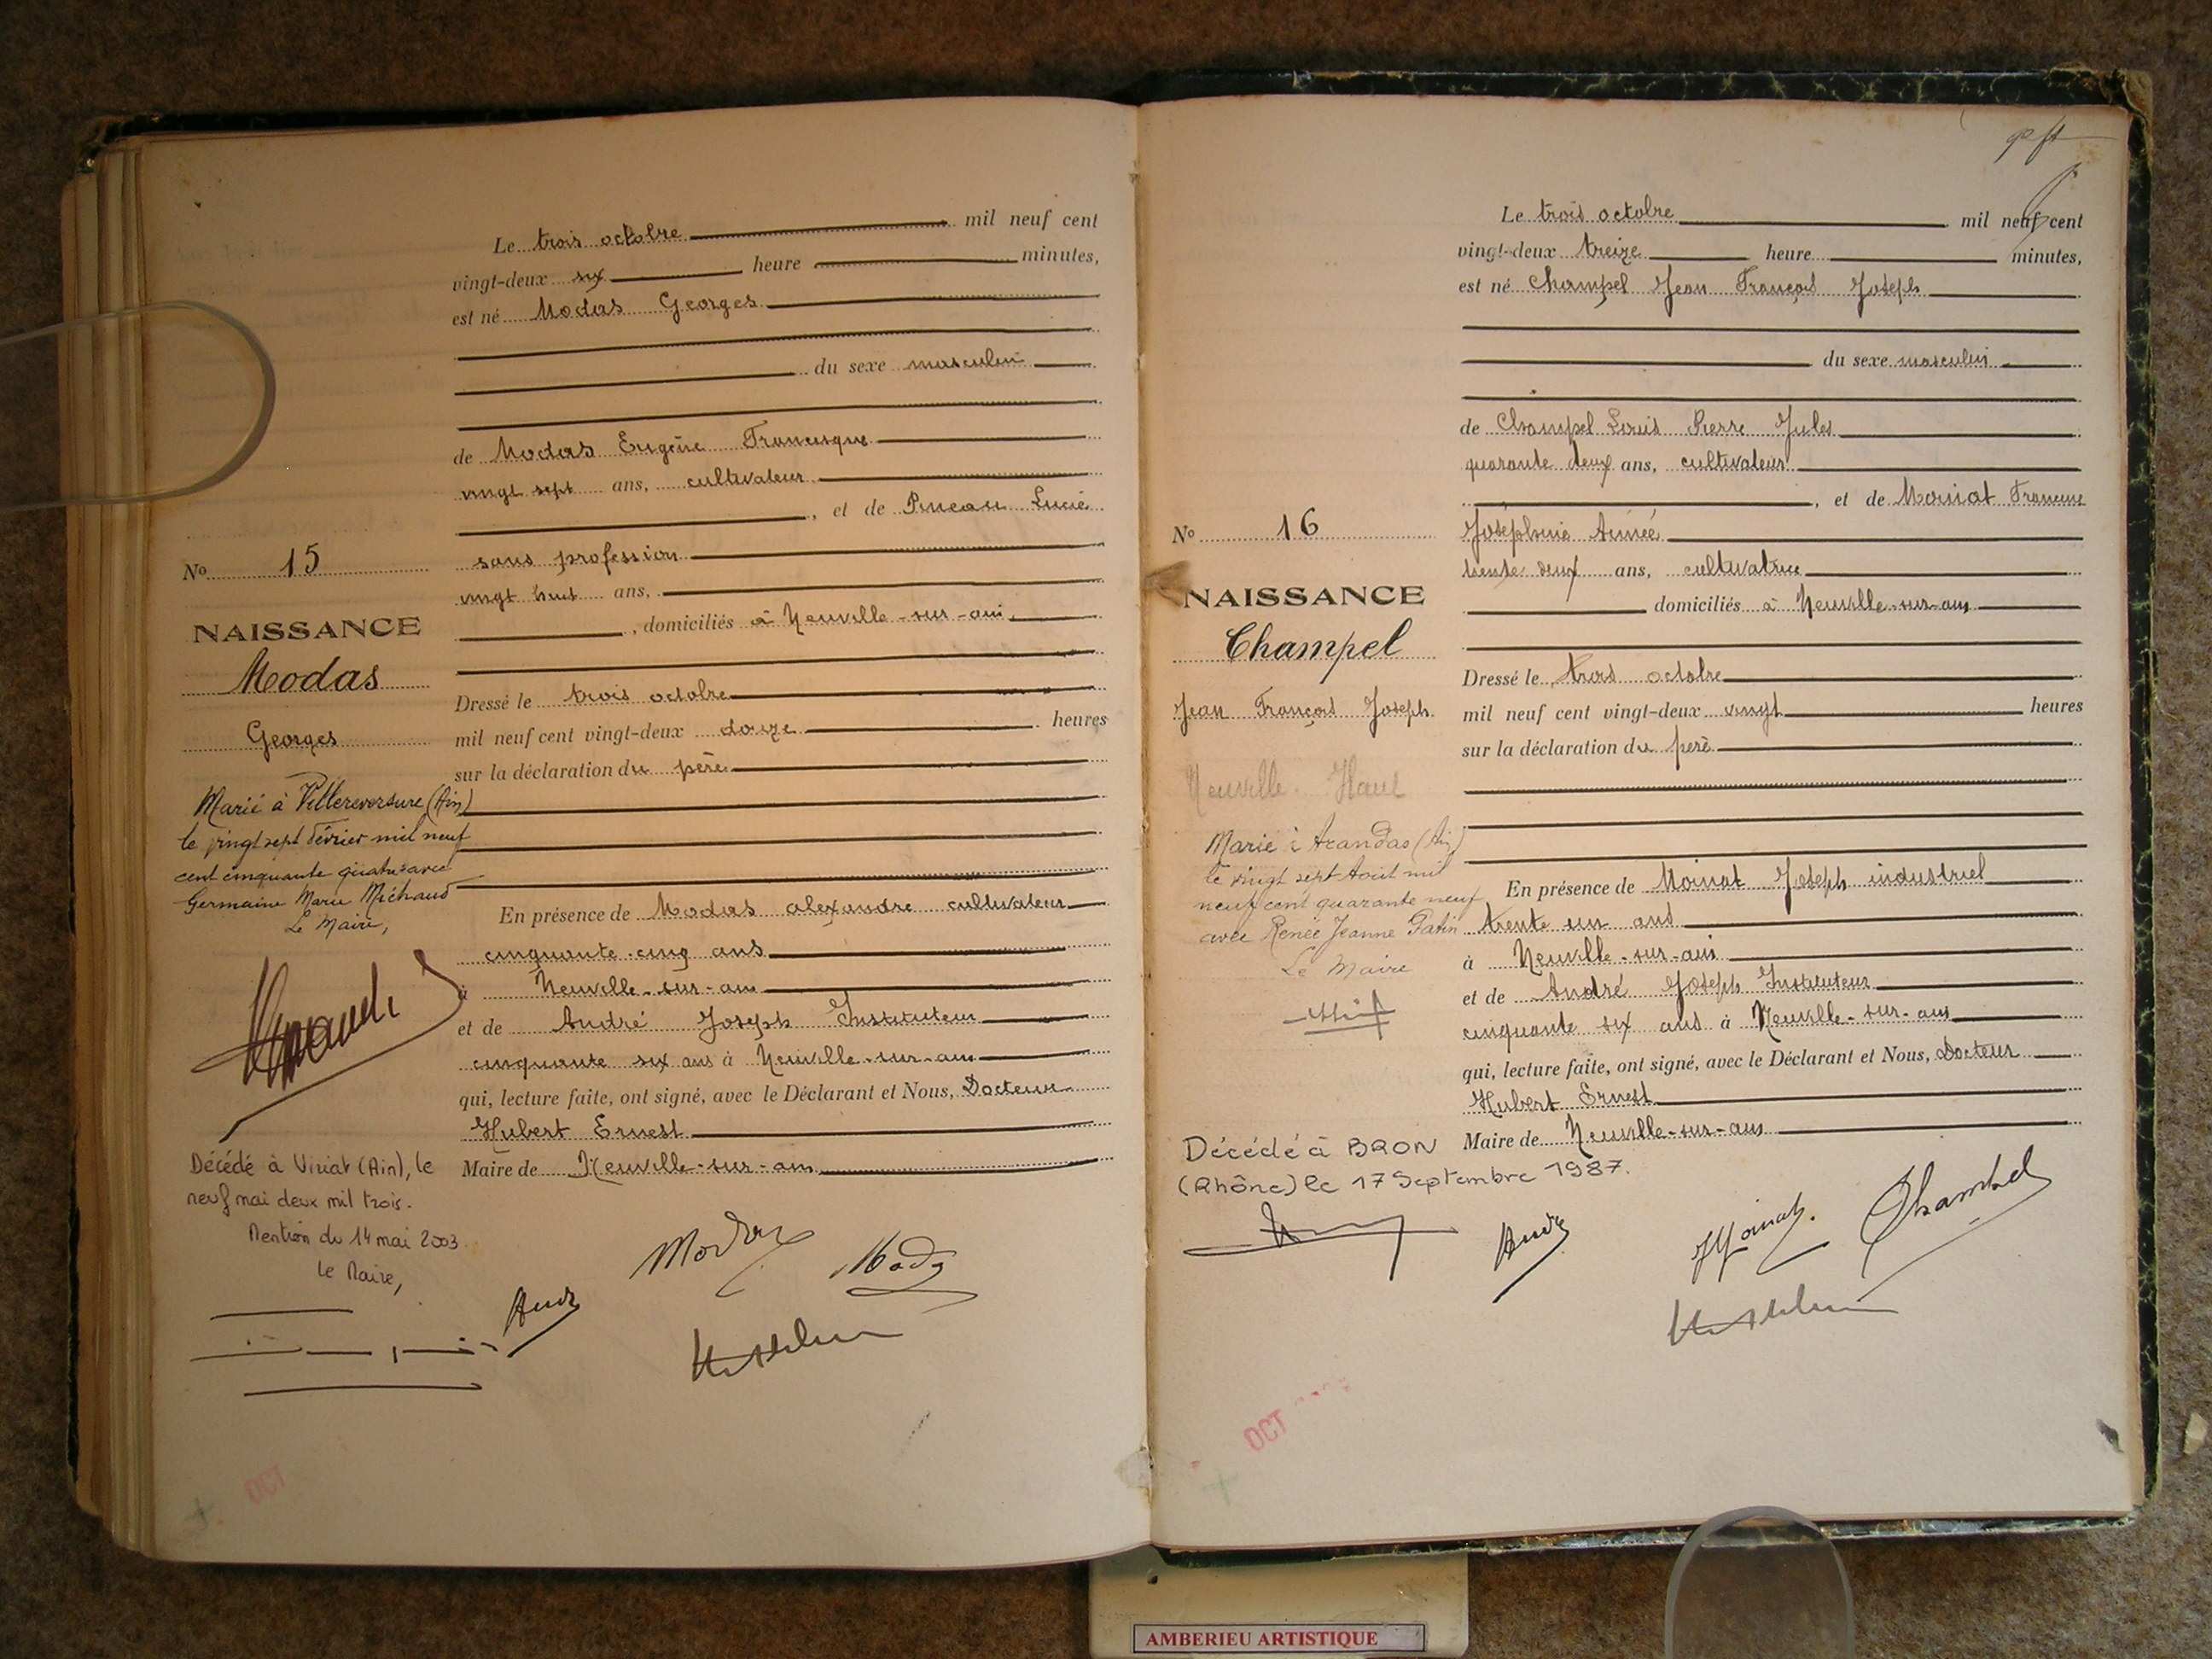 Le trois octobre mil neuf cent
vingt-deux six heure minutes,
est né Modas Georges
du sexe masculin
de Modas Eugène Francisque
vingt sept ans, cultivateur
, et de Pineau Lucie
sans profession
vingt huit ans,
, domiciliés à Neuville-sur-ain
Dressé le trois octobre
mil neuf cent vingt-deux douze heures
sur la déclaration du père
En présence de Modas alexandre cultivateur
cinquante-cinq ans
à Neuville-sur-ain
et de André Joseph Instituteur
cinquante six ans à Neuville-sur-ain
qui, lecture faite, ont signé, avec le Déclarant et Nous, Docteur
Hubert Ernest
Maire de Neuville-sur-ain
No 15
NAISSANCE
Modas
Georges
Marié à Villereversure (Ain)
le vingt sept Février mil neuf
cent cinquante quatre avec
Germaine Marie Michaud
Le Maire,
Décédé à Viriat (Ain), le
neuf mai deux mil trois.
Mention du 14 mai 2003
Le Maire,
André
Modas
Modas
OCT
Le trois octobre mil neuf cent
vingt-deux treize heure minutes,
est né Champel Jean François Joseph
du sexe masculin
de Champel Louis Pierre Jules
quarante deux ans, cultivateur
, et de Francine
Joséphine Aimée
trente deux ans, cultivatrice
domiciliés à Neuville-sur-ain
Dressé le trois octobre
mil neuf cent vingt-deux vingt heures
sur la déclaration du père
En présence de Moinat Joseph industriel
trente un ans
à Neuville-sur-ain
et de André Joseph Instituteur
cinquante six ans à Neuville-sur-ain
qui, lecture faite, ont signé, avec le Déclarant et Nous, Docteur
Hubert Ernest
Maire de Neuville-sur-ain
No 16
NAISSANCE
Champel
Jean François Joseph
Neuville Haut
Marié à Arandas (Ain)
le vingt sept Août mil
neuf cent quarante neuf
avec Renée Jeanne Patin
Le Maire
Décédé à BRON
(Rhône) le 17 Septembre 1987.
André
Moinat
Champel
OCT
AMBERIEU ARTISTIQUE